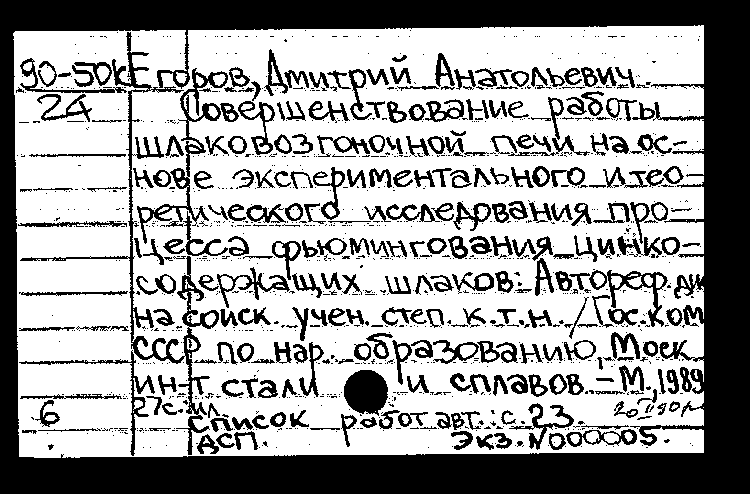 90-50к Егоров, Дмитрий Анатольевич.
24 Совершенствование работы
шлаковозгоночной печи на ос-
нове экспериментального и тео-
ретического исследования про-
цесса фьюмингования цинко-
содержащих шлаков: Автореф. дис
на соиск. учен. степ. к.т.н. / Гос. ком
СССР по нар. образованию, Моск
ин-т стали и сплавов. – М., 1989
6 27с.: ил.
Список работ авт.: с. 23.
ДСП. Экз. N000005.